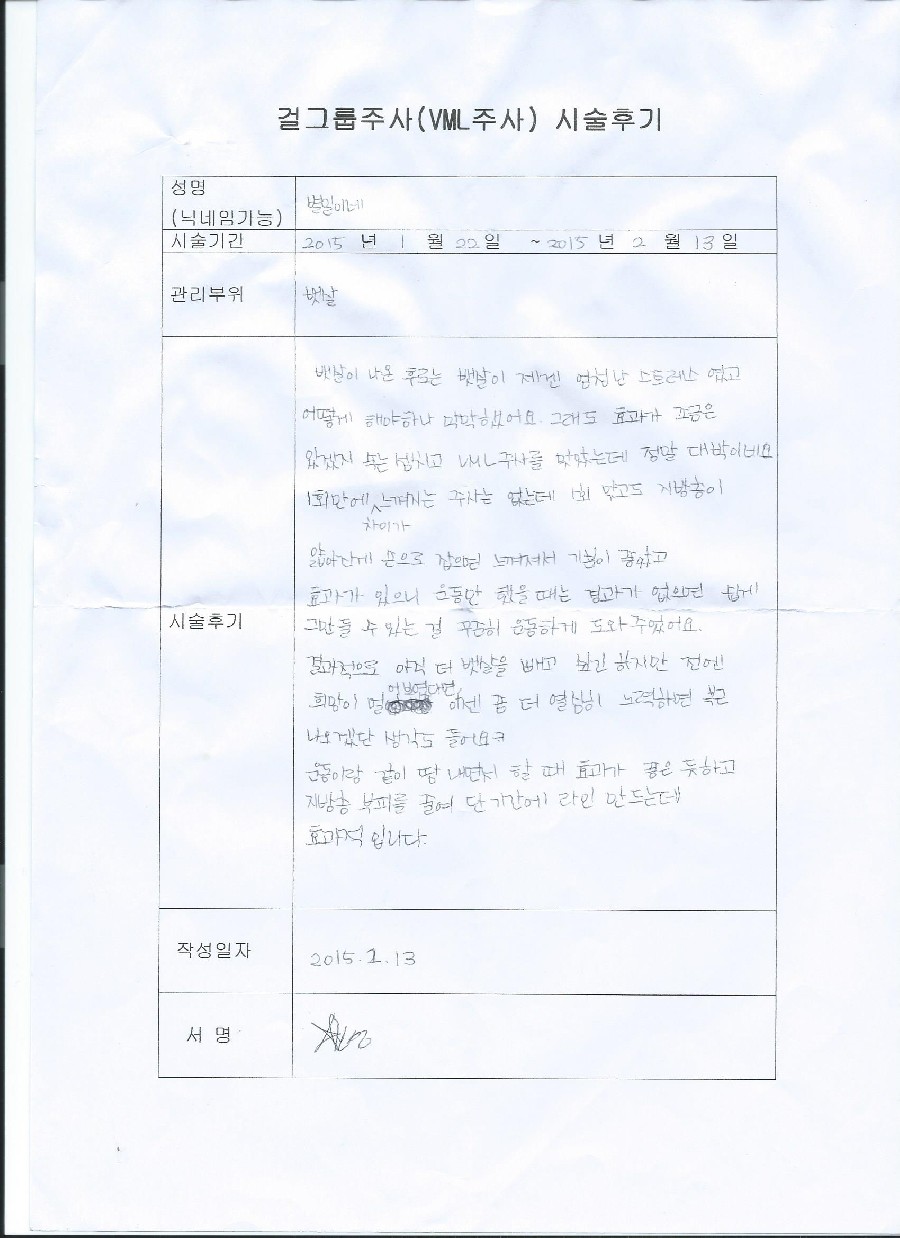 걸그룹주사(VML주사) 시술후기
성명
(닉네임가능)
별밀이네
시술기간 2015 년 1 월 22 일 ~ 2015 년 2 월 13 일
관리부위 뱃살
시술후기
뱃살이 나온 후로는 뱃살이 제겐 엄청난 스트레스 였고
어떻게 해야하나 막막했어요. 그래도 효과가 조금은
있겠지 속는셈치고 VML주사를 맞았는데 정말 대박이네요
1회만에 차이가 느껴지는 주사는 없는데 1회 맞고도 지방층이
얇아진게 손으로 잡으면 느껴져서 기분이 좋았고
효과가 있으니 운동만 했을때는 결과가 없으면 쉽게
그만둘 수 있는 걸 꾸준히 운동하게 도와주었어요.
결과적으로 아직 더 뱃살을 빼고 싶긴 하지만 전엔
희망이 없어보였다면 이젠 좀 더 열심히 노력하면 복근
나오겠단 생각도 들어요ㅋ
운동이랑 같이 땀 내면서 할 때 효과가 좋은 듯하고
지방층 부피를 줄여 단기간에 라인 만드는데
효과적 입니다.
작성일자 2015.2.13
서 명